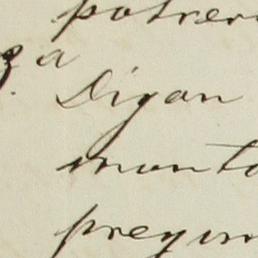 potrer
a
Digan
mont
pregun